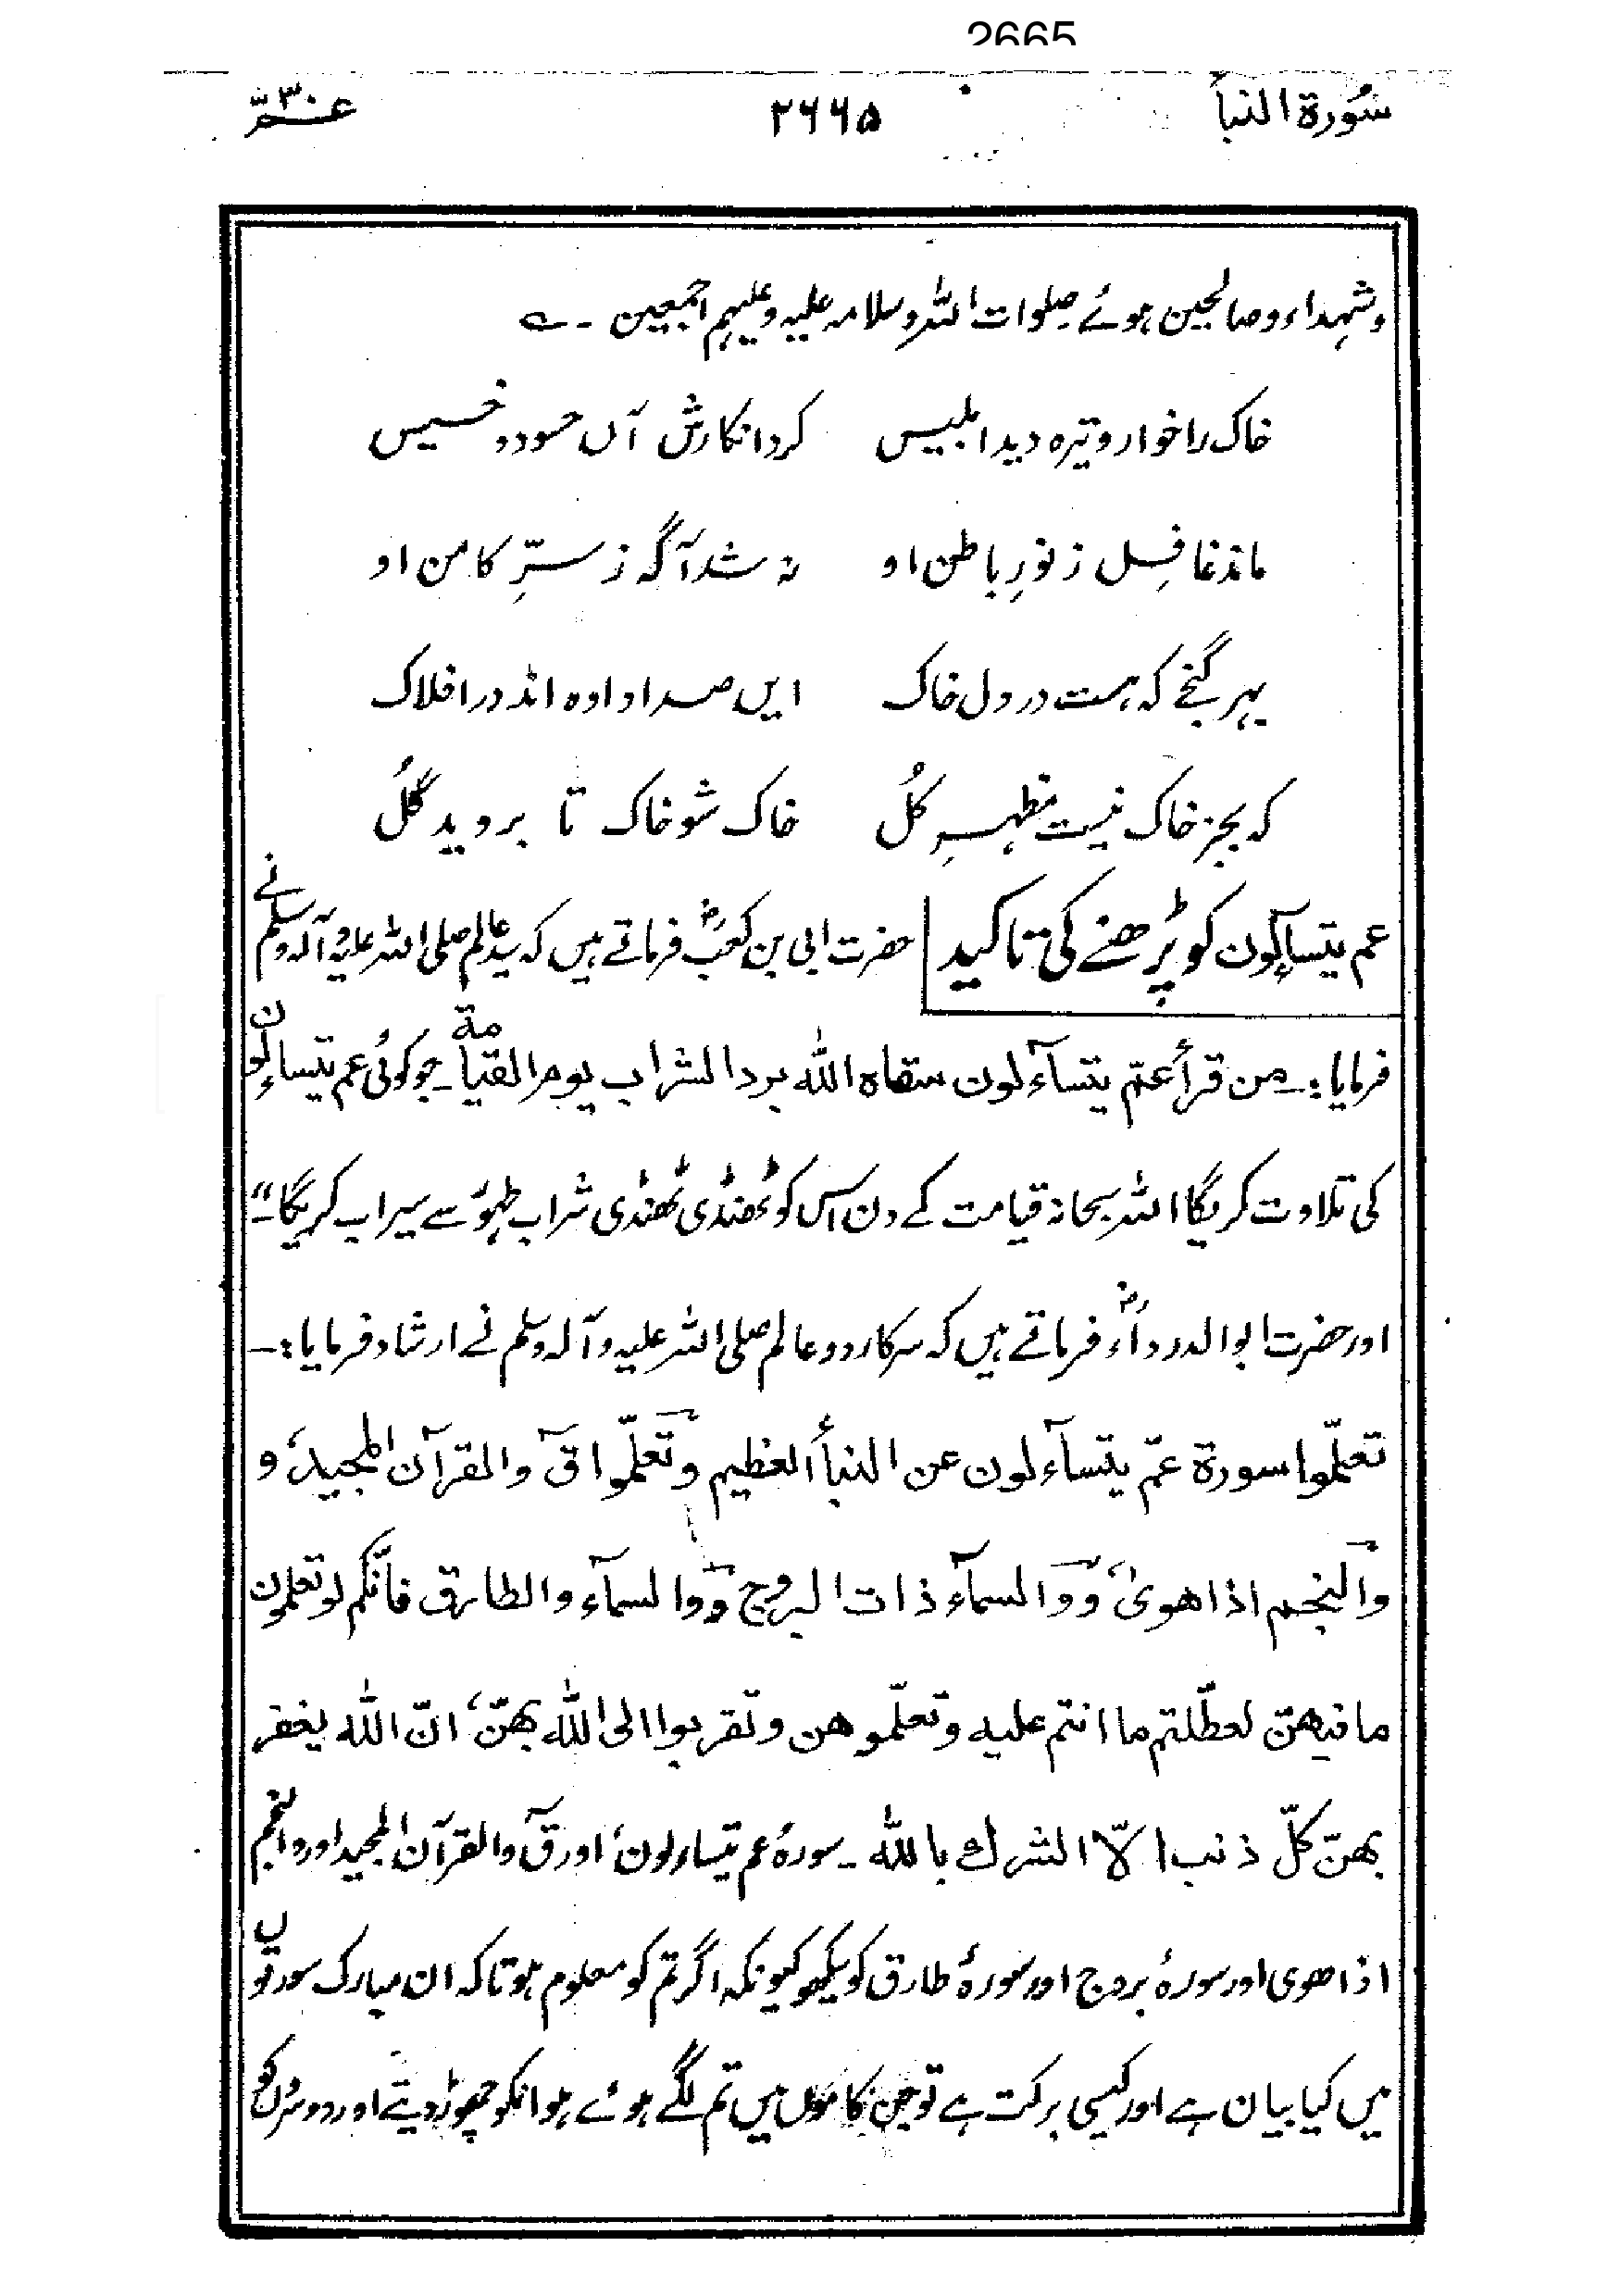 2665
سُورة النبأ ۲۶۶۵ عمّ ۳۰
و شہداء و صالحین ہوئے صلوات اللہ و سلامہ علیہ و علیہم اجمعین ۔ ؎
خاک را خوار و تیرہ دید ابلیس کرد انکارش آں حسود و خسیس
ماند غافِل ز نورِ باطن او نہ شد آگہ ز سترِّ کامن او
بہر گنجے کہ ہست در دل خاک ایں صدا دادہ اند در افلاک
کہ بجز خاک نیست مظہرِ کُل خاک شو خاک تا بروید گُل
عم یتساءلون کو پڑھنے کی تاکید حضرت ابی بن کعبؓ فرماتے ہیں کہ سید عالم صلی اللہ علیہ و آلہ وسلم نے
فرمایا :۔ من قرأ عمّ یتسآءلون سقاہ اللہ برد الشراب یوم القیامۃ ۔ جو کوئی عم یتساءلون
کی تلاوت کریگا اللہ سبحانہ قیامت کے دن اس کو ٹھنڈی ٹھنڈی شراب طہور سے سیراب کریگا ۔"
اور حضرت ابو الدرداءؓ فرماتے ہیں کہ سرکار دو عالم صلی اللہ علیہ و آلہ وسلم نے ارشاد فرمایا :۔
تعلّموا سورۃ عمّ یتسآءلون عن النبأ العظیم وتعلّموا قٓ والقرآن المجید، و
والنجم اذا ھویٰ، و والسمآء ذات البروج و والسمآء والطارق فانّکم لو تعلمون
ما فیھنّ لعطّلتم ما انتم علیہ وتعلّموھن وتقربوا الی اللہ بھنّ، انّ اللہ یغفر
بھنّ کلّ ذنب الّا الشرك باللہ ۔ سورۂ عم یتساءلون، اور قٓ والقرآن المجید اور والنجم
اذا ھوی اور سورۂ بروج اور سورۂ طارق کو سیکھو کیونکہ اگر تم کو معلوم ہوتا کہ ان مبارک سورتوں
میں کیا بیان ہے اور کیسی برکت ہے تو جن کاموں میں تم لگے ہوئے ہو انکو چھوڑ دیتے اور دوسروں کو